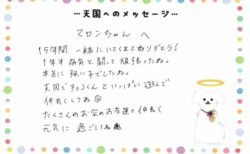 …天国へのメッセージ…
マロンちゃんへ
15年間 一緒にいてくれてありがとう!
1年半 病気と闘って頑張ったね。
本当に強い子でしたね。
天国でチョコくんといっぱい遊んで
仲良くしてね
たくさんのお空のお友達と仲良く
元気に過ごしてね